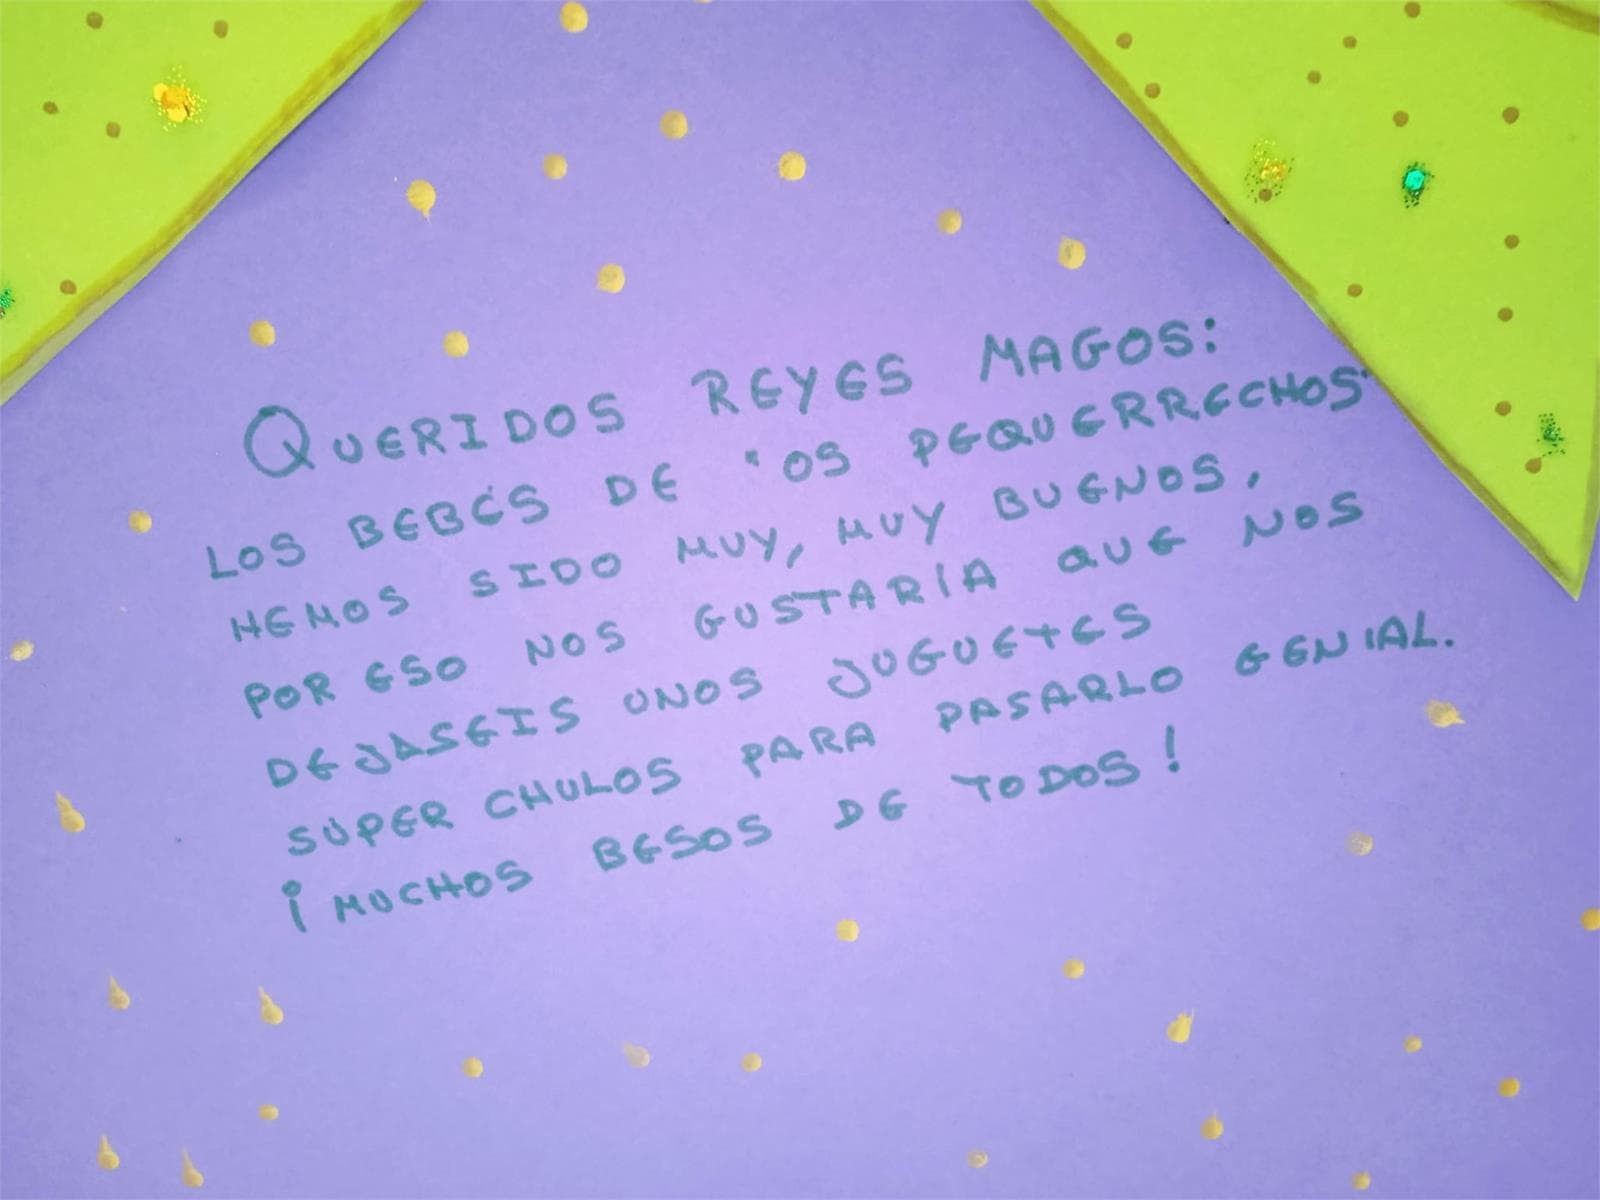 QUERIDOS REYES MAGOS:
LOS BEBÉS DE "OS PEQUERRECHOS"
HEMOS SIDO MUY, MUY BUENOS,
POR ESO NOS GUSTARÍA QUE NOS
DEJASEIS UNOS JUGUETES
SÚPER CHULOS PARA PASARLO GENIAL.
¡MUCHOS BESOS DE TODOS!